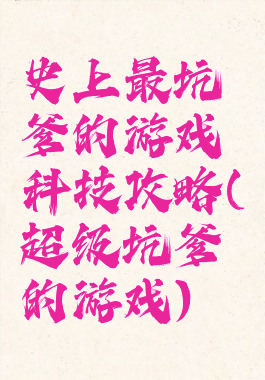 史上最坑
爹的游戏
科技攻略(
超级坑爹
的游戏)